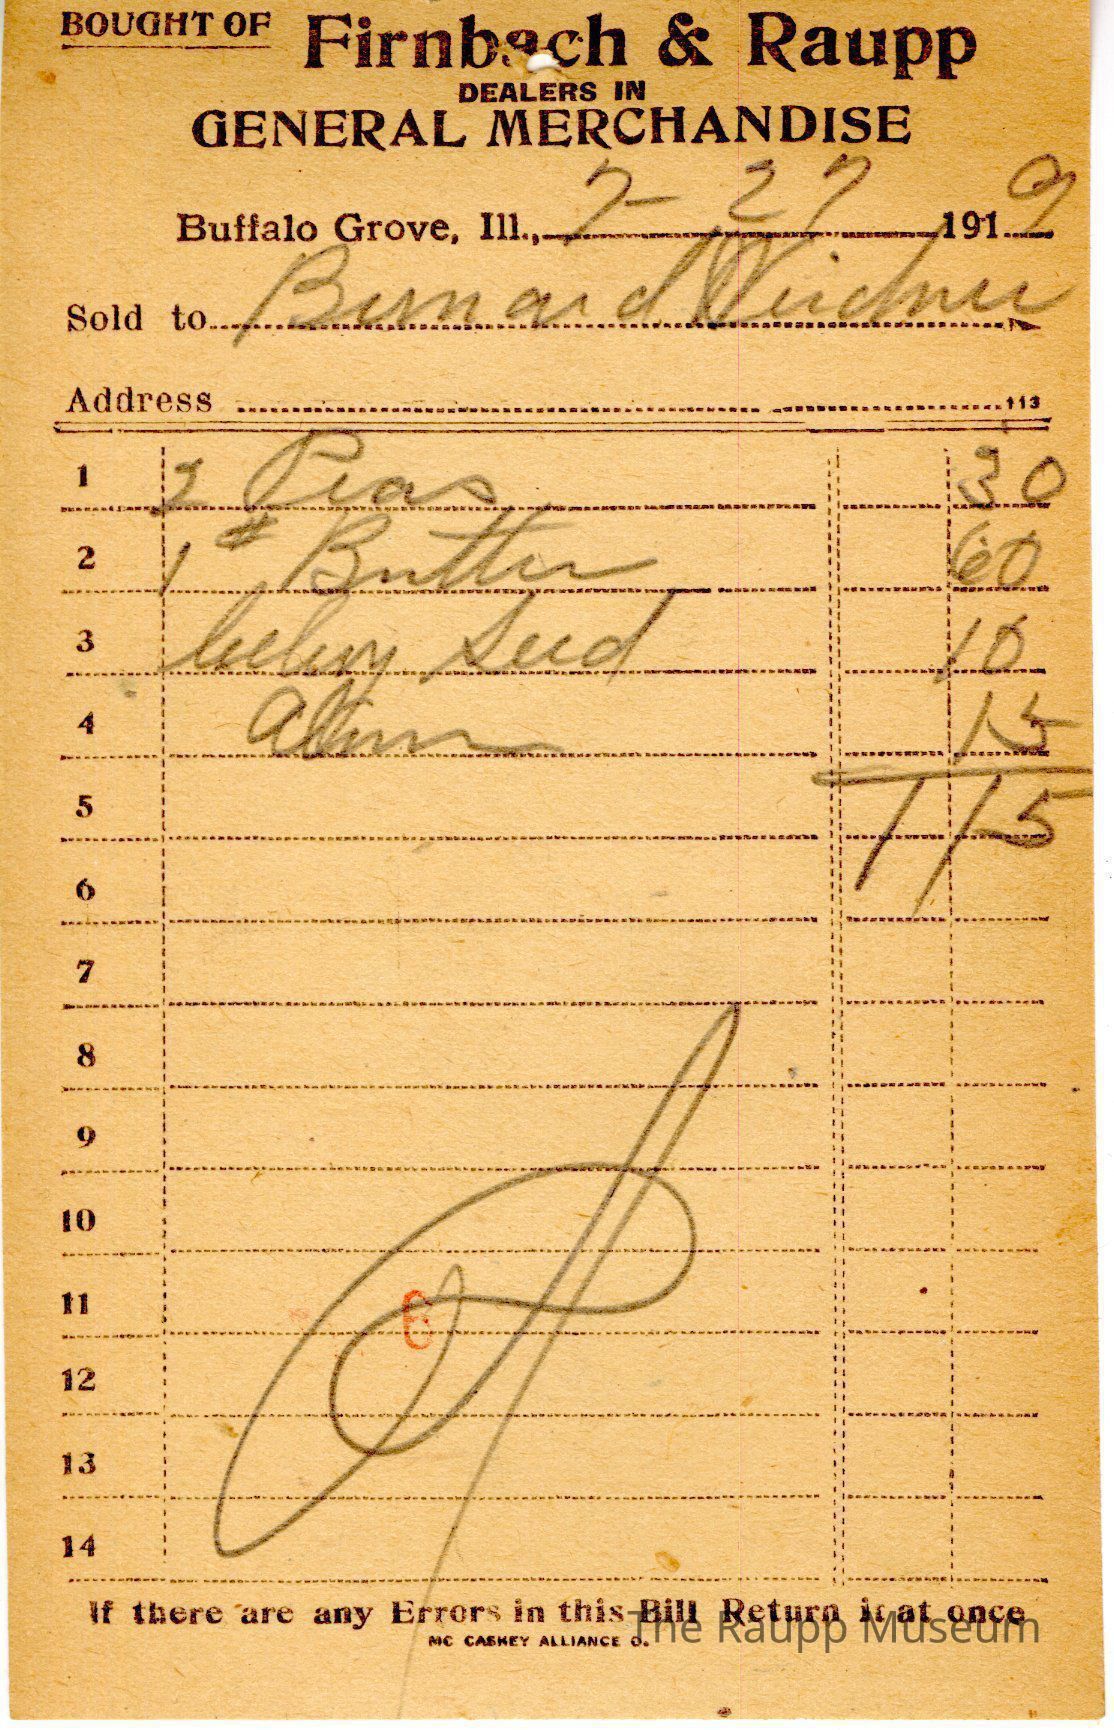 BOUGHT OF Firnbach & Raupp
DEALERS IN
GENERAL MERCHANDISE
Buffalo Grove, Ill., 7-27 1919
Sold to Bernard Weidner
Address 113
1 2 Peas 30
2 1 # Butter 60
3 Celery Seed 10
4 Alum 15
5 1 15
6
7
8
9
10
11
6
12
13
14
If there are any Errors in this Bill Return it at once
MC CASKEY ALLIANCE O.
The Raupp Museum